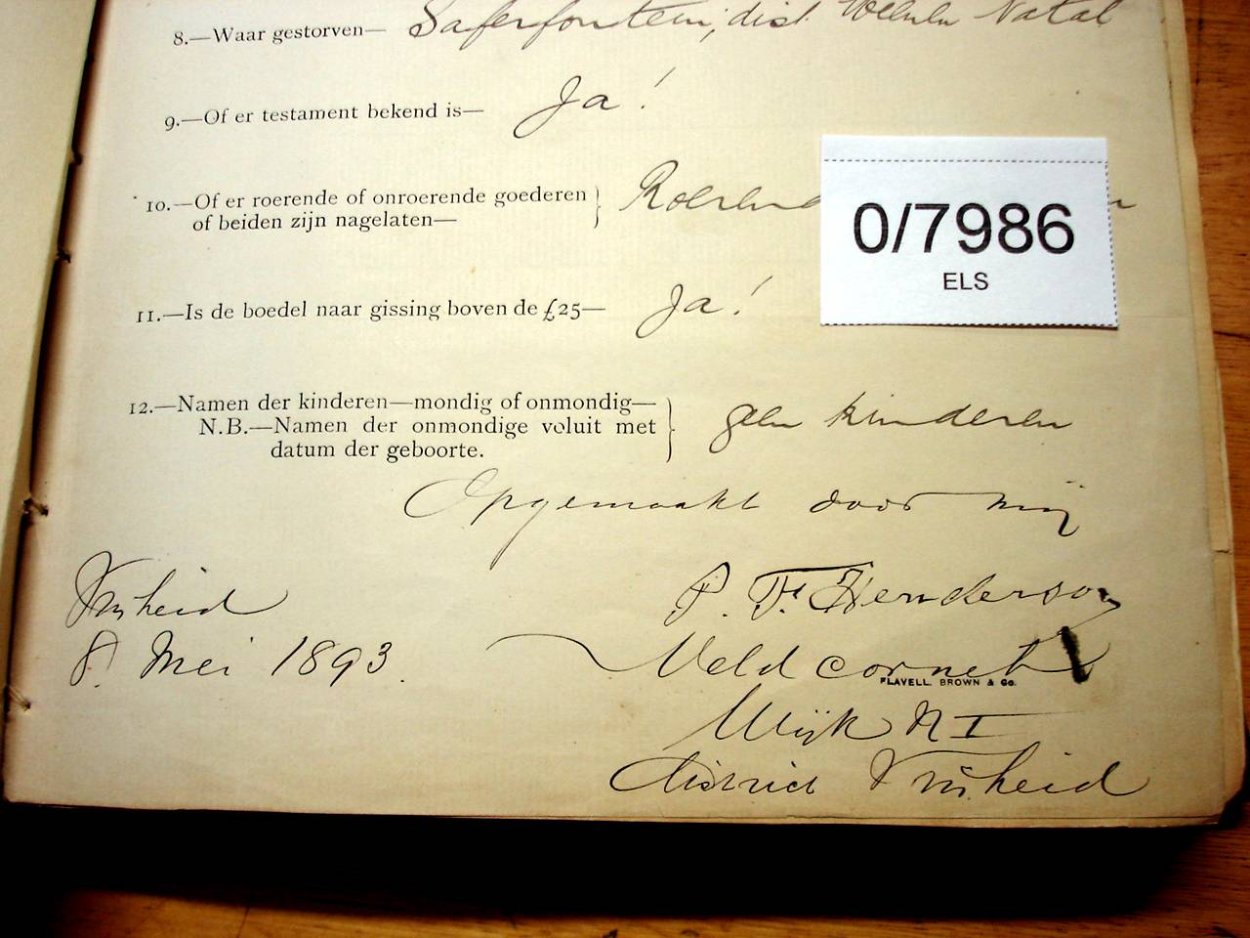 8.—Waar gestorven— Saferfontein, dist. Weenen Natal
9.—Of er testament bekend is— Ja!
10.—Of er roerende of onroerende goederen
of beiden zijn nagelaten—
0/7986
ELS
11.—Is de boedel naar gissing boven de £25— Ja!
12.—Namen der kinderen—mondig of onmondig—
N.B.—Namen der onmondige voluit met
datum der geboorte.
geen kinderen
Opgemaakt door mij
Vrijheid
8. Mei 1893.
P. F. Henderson
Veldcornet
FLAVELL. BROWN & Co.
Wijk N I
district Vrijheid